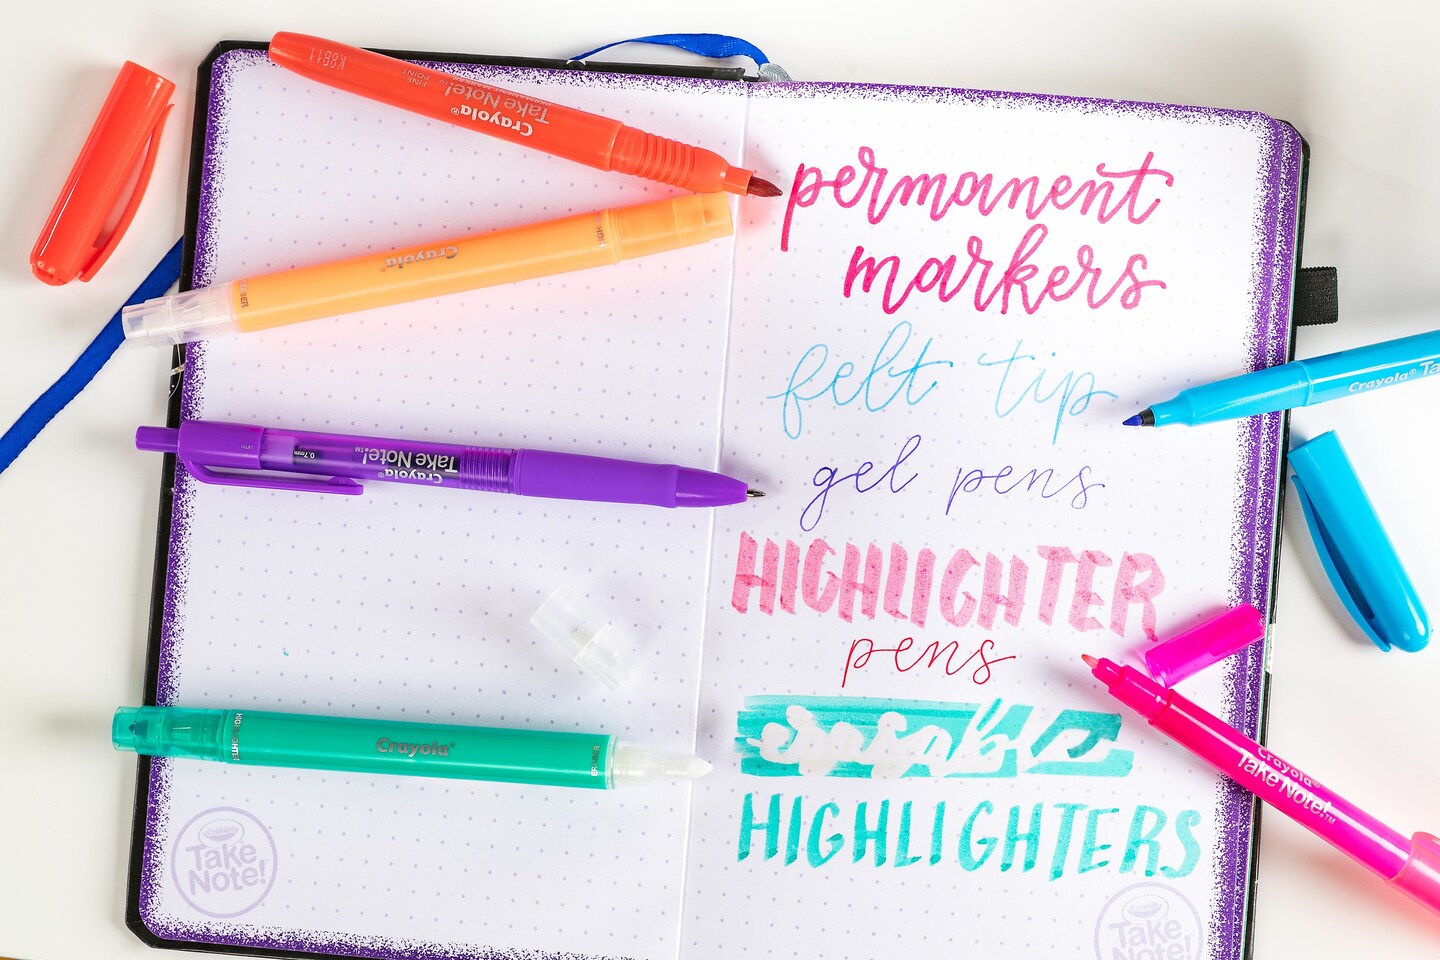 Crayola®
Take Note!
FINE
POINT
Crayola®
HIGH
ERASER
Crayola®
Take Note!™
0.7mm
HIGHLIGHTER
Crayola®
ERASER
Take
Note!
permanent
markers
felt tip
gel pens
HIGHLIGHTER
pens
erasable
HIGHLIGHTERS
Crayola® Ta
Crayola®
Take Note!™
Take
Note!